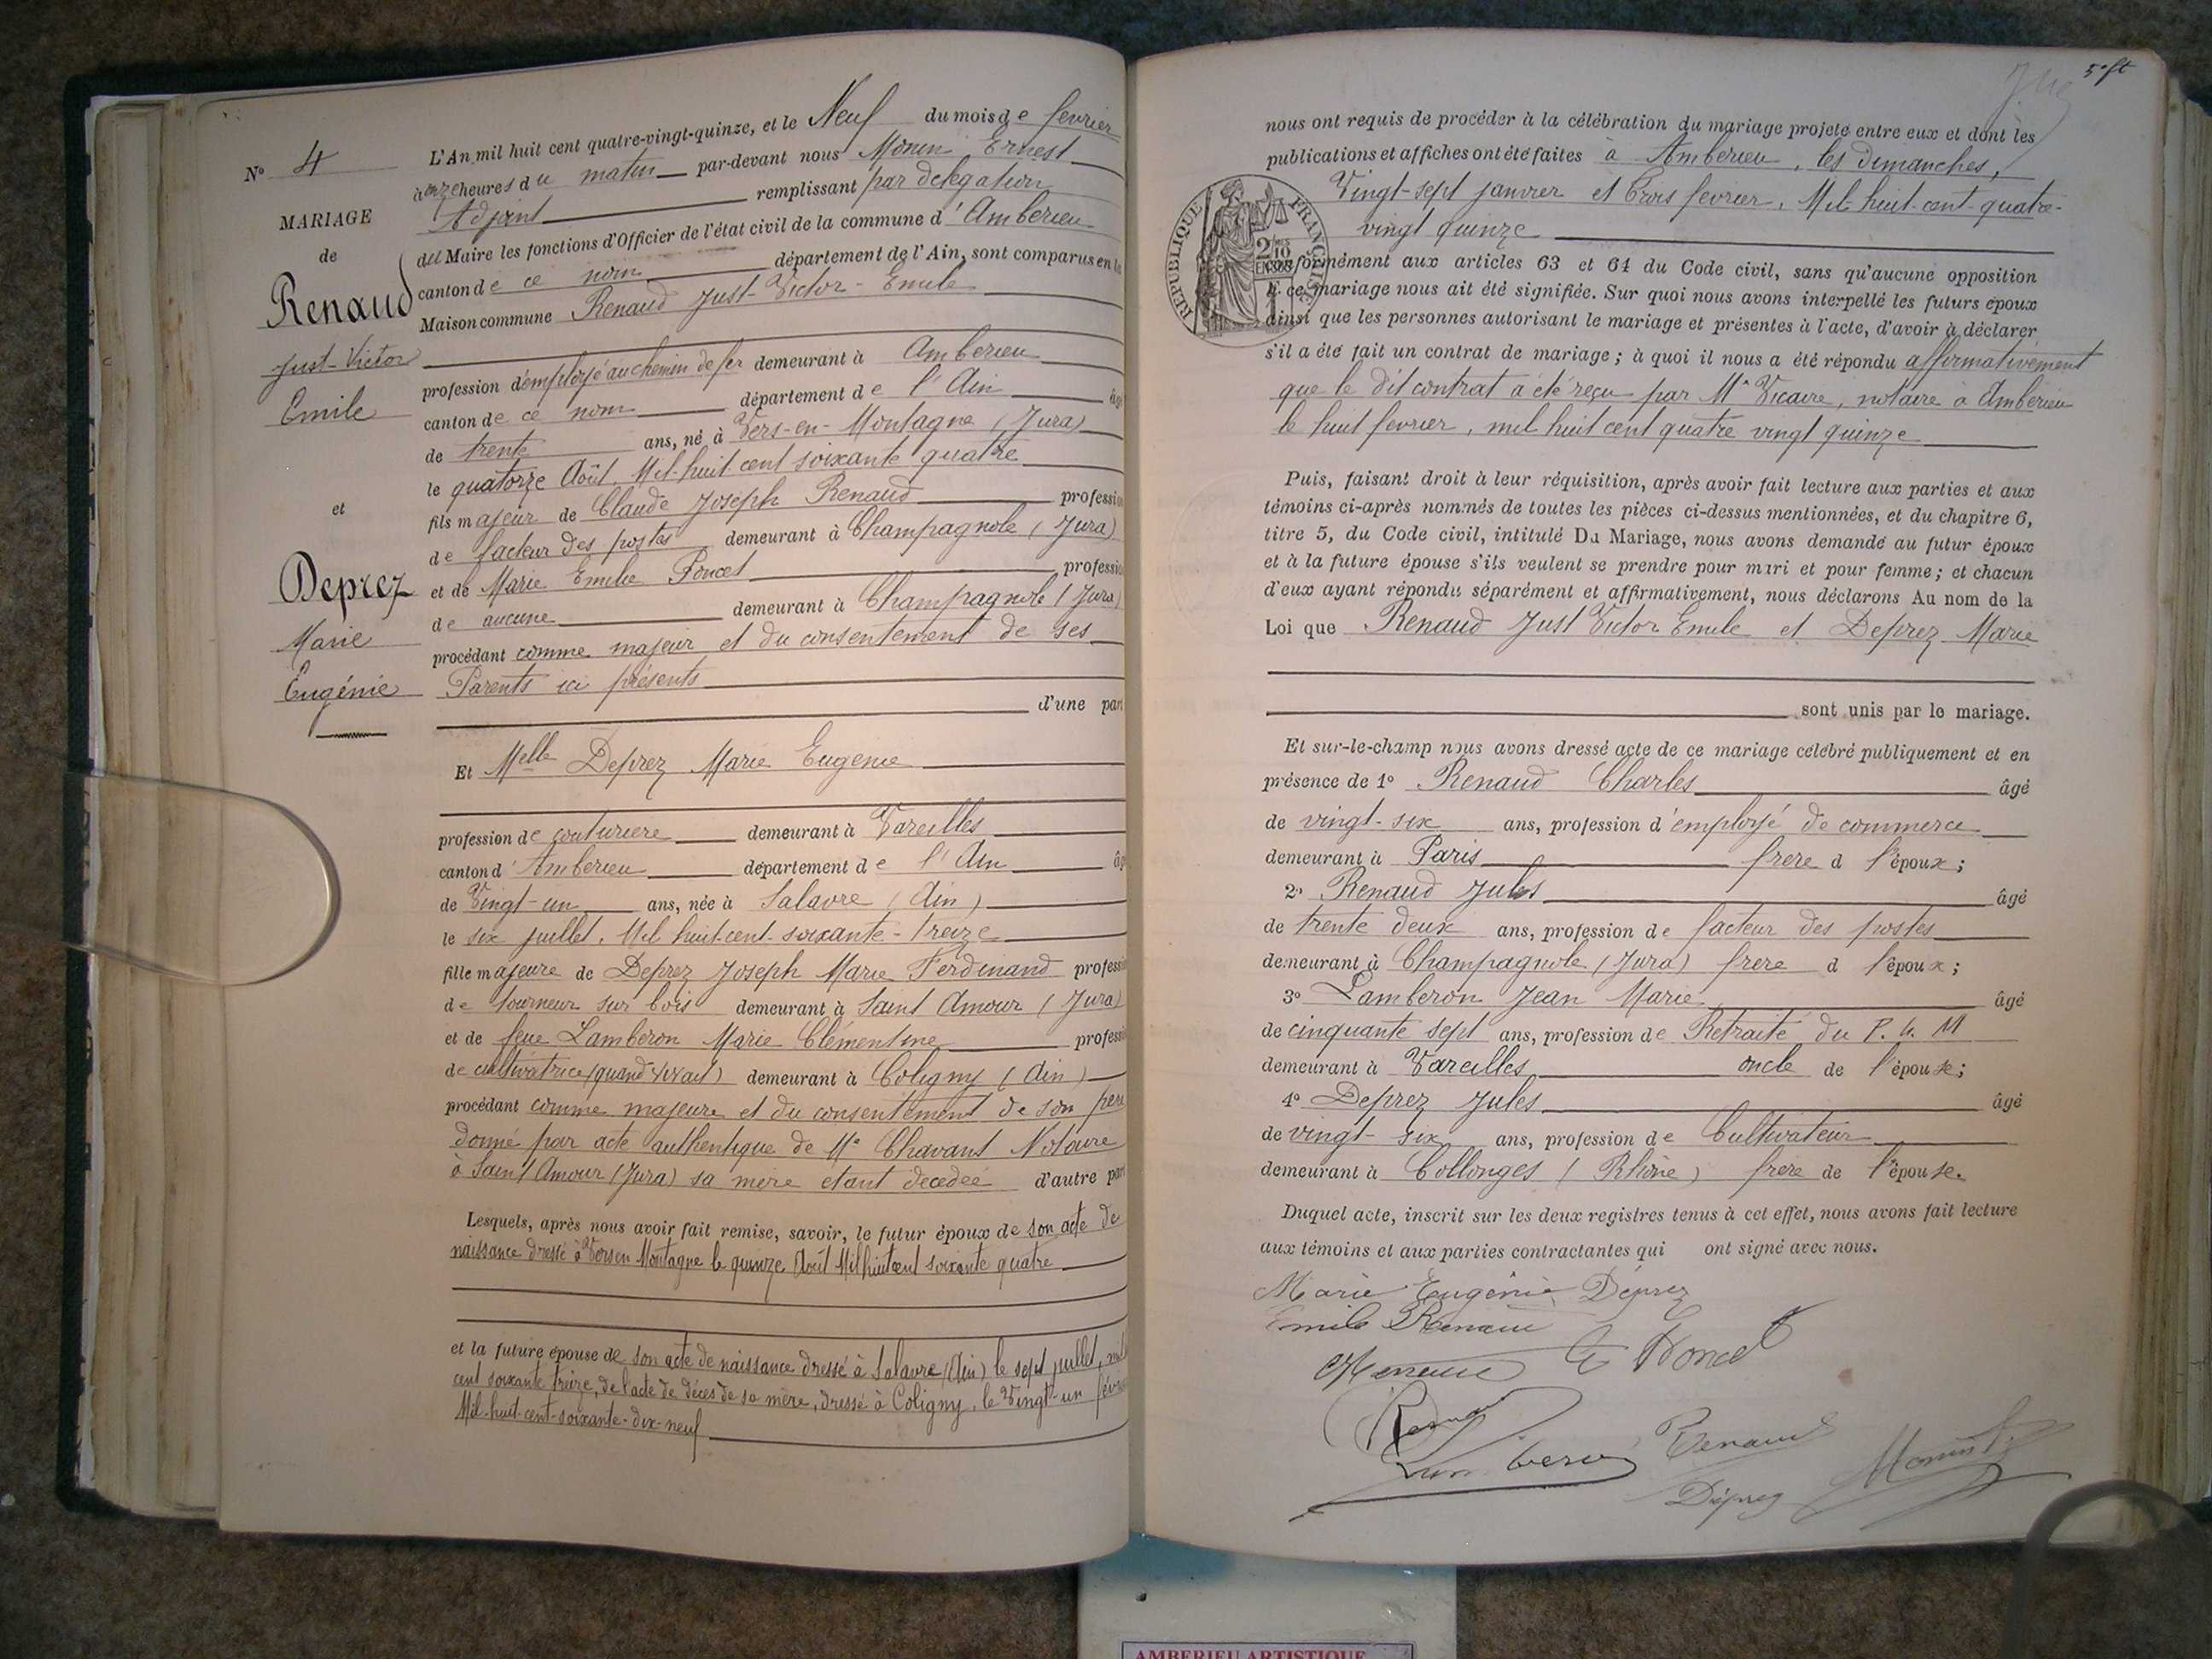 N° 4
MARIAGE
de
Renaud
Just-Victor
Emile
et
Deprez
Marie
Eugénie
L'An mil huit cent quatre-vingt-quinze, et le Neuf du mois de fevrier
à onze heures du matin par-devant nous Monin Ernest
Adjoint remplissant par délégation
du Maire les fonctions d'Officier de l'état civil de la commune d'Amberieu
canton de ce nom département de l'Ain, sont comparus en la
Maison commune Renaud Just-Victor-Emile
profession d'employé au chemin de fer demeurant à Amberieu
canton de ce nom département de l'Ain âgé
de trente ans, né à Vers-en-Montagne (Jura)
le quatorze Août, Mil-huit-cent soixante quatre
fils majeur de Claude Joseph Renaud profession
de facteur des postes demeurant à Champagnole (Jura)
et de Marie Emilie Poncet profession
de aucune demeurant à Champagnole (Jura)
procédant comme majeur et du consentement de ses
Parents ici présents
d'une part
Et Melle Deprez Marie Eugenie
profession de couturiere demeurant à Vareilles
canton d'Amberieu département de l'Ain âgé
de Vingt-un ans, née à Salavre (Ain)
le six juillet, Mil huit-cent-soixante-treize
fille majeure de Deprez Joseph Marie Ferdinand profession
de tourneur sur bois demeurant à Saint Amour (Jura)
et de feue Lamberon Marie Clémentine profession
de cultivatrice (quand vivait) demeurant à Coligny (Ain)
procédant comme majeure et du consentement de son pere
donné par acte authentique de Me Chavant Notaire
à Saint Amour (Jura) sa mère étant décédée d'autre part
Lesquels, après nous avoir fait remise, savoir, le futur époux de son acte de
naissance dressé à Vers en Montagne le quinze Août Mil huit cent soixante quatre
et la future épouse de son acte de naissance dressé à Salavre (Ain) le sept juillet, mil
cent soixante treize, de l'acte de décès de sa mère, dressé à Coligny, le Vingt-un févr
Mil-huit-cent-soixante-dix-neuf
5e ft
nous ont requis de procéder à la célébration du mariage projeté entre eux et dont les
publications et affiches ont été faites a Amberieu, les dimanches,
Vingt-sept janvier et trois fevrier, Mil-huit-cent-quatre-
vingt quinze
RÉPUBLIQUE FRANÇAISE
conformément aux articles 63 et 64 du Code civil, sans qu'aucune opposition
à ce mariage nous ait été signifiée. Sur quoi nous avons interpellé les futurs époux
ainsi que les personnes autorisant le mariage et présentes à l'acte, d'avoir à déclarer
s'il a été fait un contrat de mariage; à quoi il nous a été répondu affirmativement
que le dit contrat a été reçu par Me Vicaire, notaire à Amberieu
le huit fevrier, mil huit cent quatre vingt quinze
Puis, faisant droit à leur réquisition, après avoir fait lecture aux parties et aux
témoins ci-après nommés de toutes les pièces ci-dessus mentionnées, et du chapitre 6,
titre 5, du Code civil, intitulé Du Mariage, nous avons demandé au futur époux
et à la future épouse s'ils veulent se prendre pour mari et pour femme; et chacun
d'eux ayant répondu séparément et affirmativement, nous déclarons Au nom de la
Loi que Renaud Just Victor Emile et Deprez Marie
sont unis par le mariage.
Et sur-le-champ nous avons dressé acte de ce mariage célébré publiquement et en
présence de 1° Renaud Charles âgé
de vingt-six ans, profession d'employé de commerce
demeurant à Paris frere d l'époux;
2° Renaud Jules âgé
de trente deux ans, profession de facteur des postes
demeurant à Champagnole (Jura) frere d l'époux;
3° Lamberon Jean Marie âgé
de cinquante sept ans, profession de Retraité du P. L. M
demeurant à Vareilles oncle de l'épouse;
4° Deprez Jules âgé
de vingt-six ans, profession de Cultivateur
demeurant à Collonges (Rhône) frere de l'épouse.
Duquel acte, inscrit sur les deux registres tenus à cet effet, nous avons fait lecture
aux témoins et aux parties contractantes qui ont signé avec nous.
Marie Eugénie Déprez
Emile Renaud
E Poncet
Renaud
Lamberon
Renaud
Déprez
Monin
AMBERIEU ARTISTIQUE